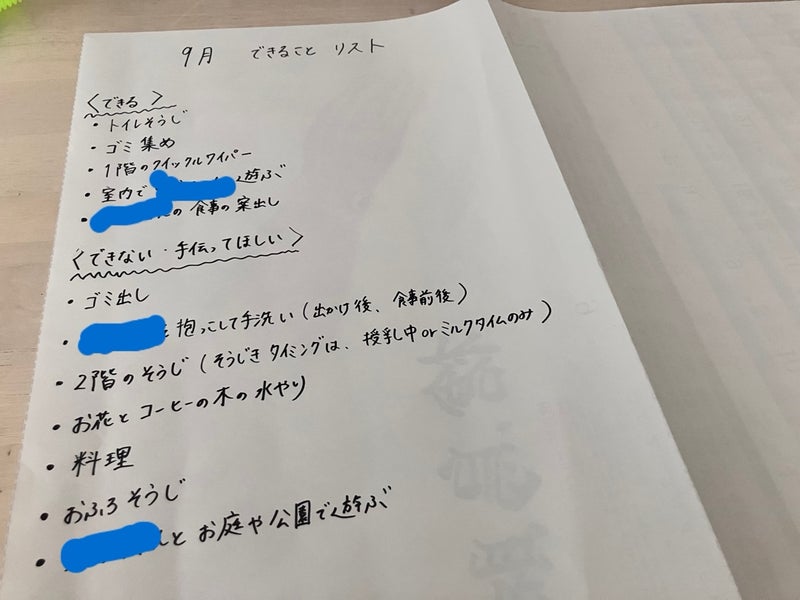 9月 できること リスト
〈できる〉
・トイレそうじ
・ゴミ集め
・1階のクイックルワイパー
・室内で 遊ぶ
・ の 食事の案出し
〈できない・手伝ってほしい〉
・ゴミ出し
・ と抱っこして手洗い(出かけ後、食事前後)
・2階のそうじ(そうじき タイミングは、授乳中orミルクタイムのみ)
・お花とコーヒーの木の水やり
・料理
・おふろそうじ
・ んと お庭や公園で遊ぶ